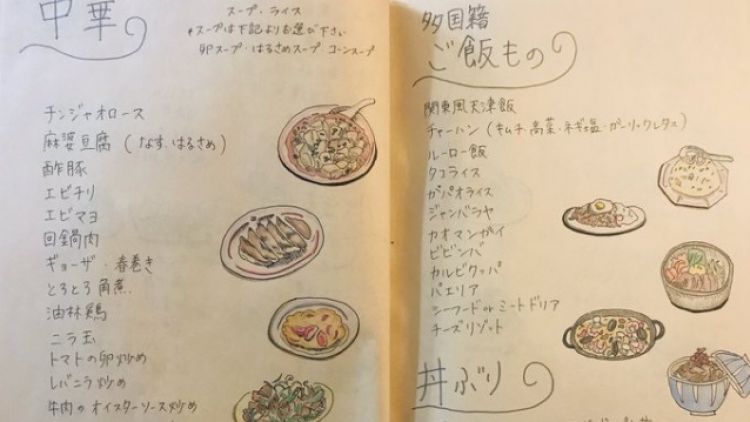 中華
スープ・ライス
*スープは下記よりお選び下さい
卵スープ・はるさめスープ コーンスープ
チンジャオロース
麻婆豆腐 (なす・はるさめ)
酢豚
エビチリ
エビマヨ
回鍋肉
ギョーザ・春巻き
とろとろ角煮
油林鶏
ニラ玉
トマトの卵炒め
レバニラ炒め
牛肉のオイスターソース炒め
多国籍
ご飯もの
関東風天津飯
チャーハン (キムチ・高菜・ネギ塩・ガーリックレタス)
ルーロー飯
タコライス
ガパオライス
ジャンバラヤ
カオマンガイ
ビビンバ
カルビクッパ
パエリア
シーフードorミートドリア
チーズリゾット
丼ぶり